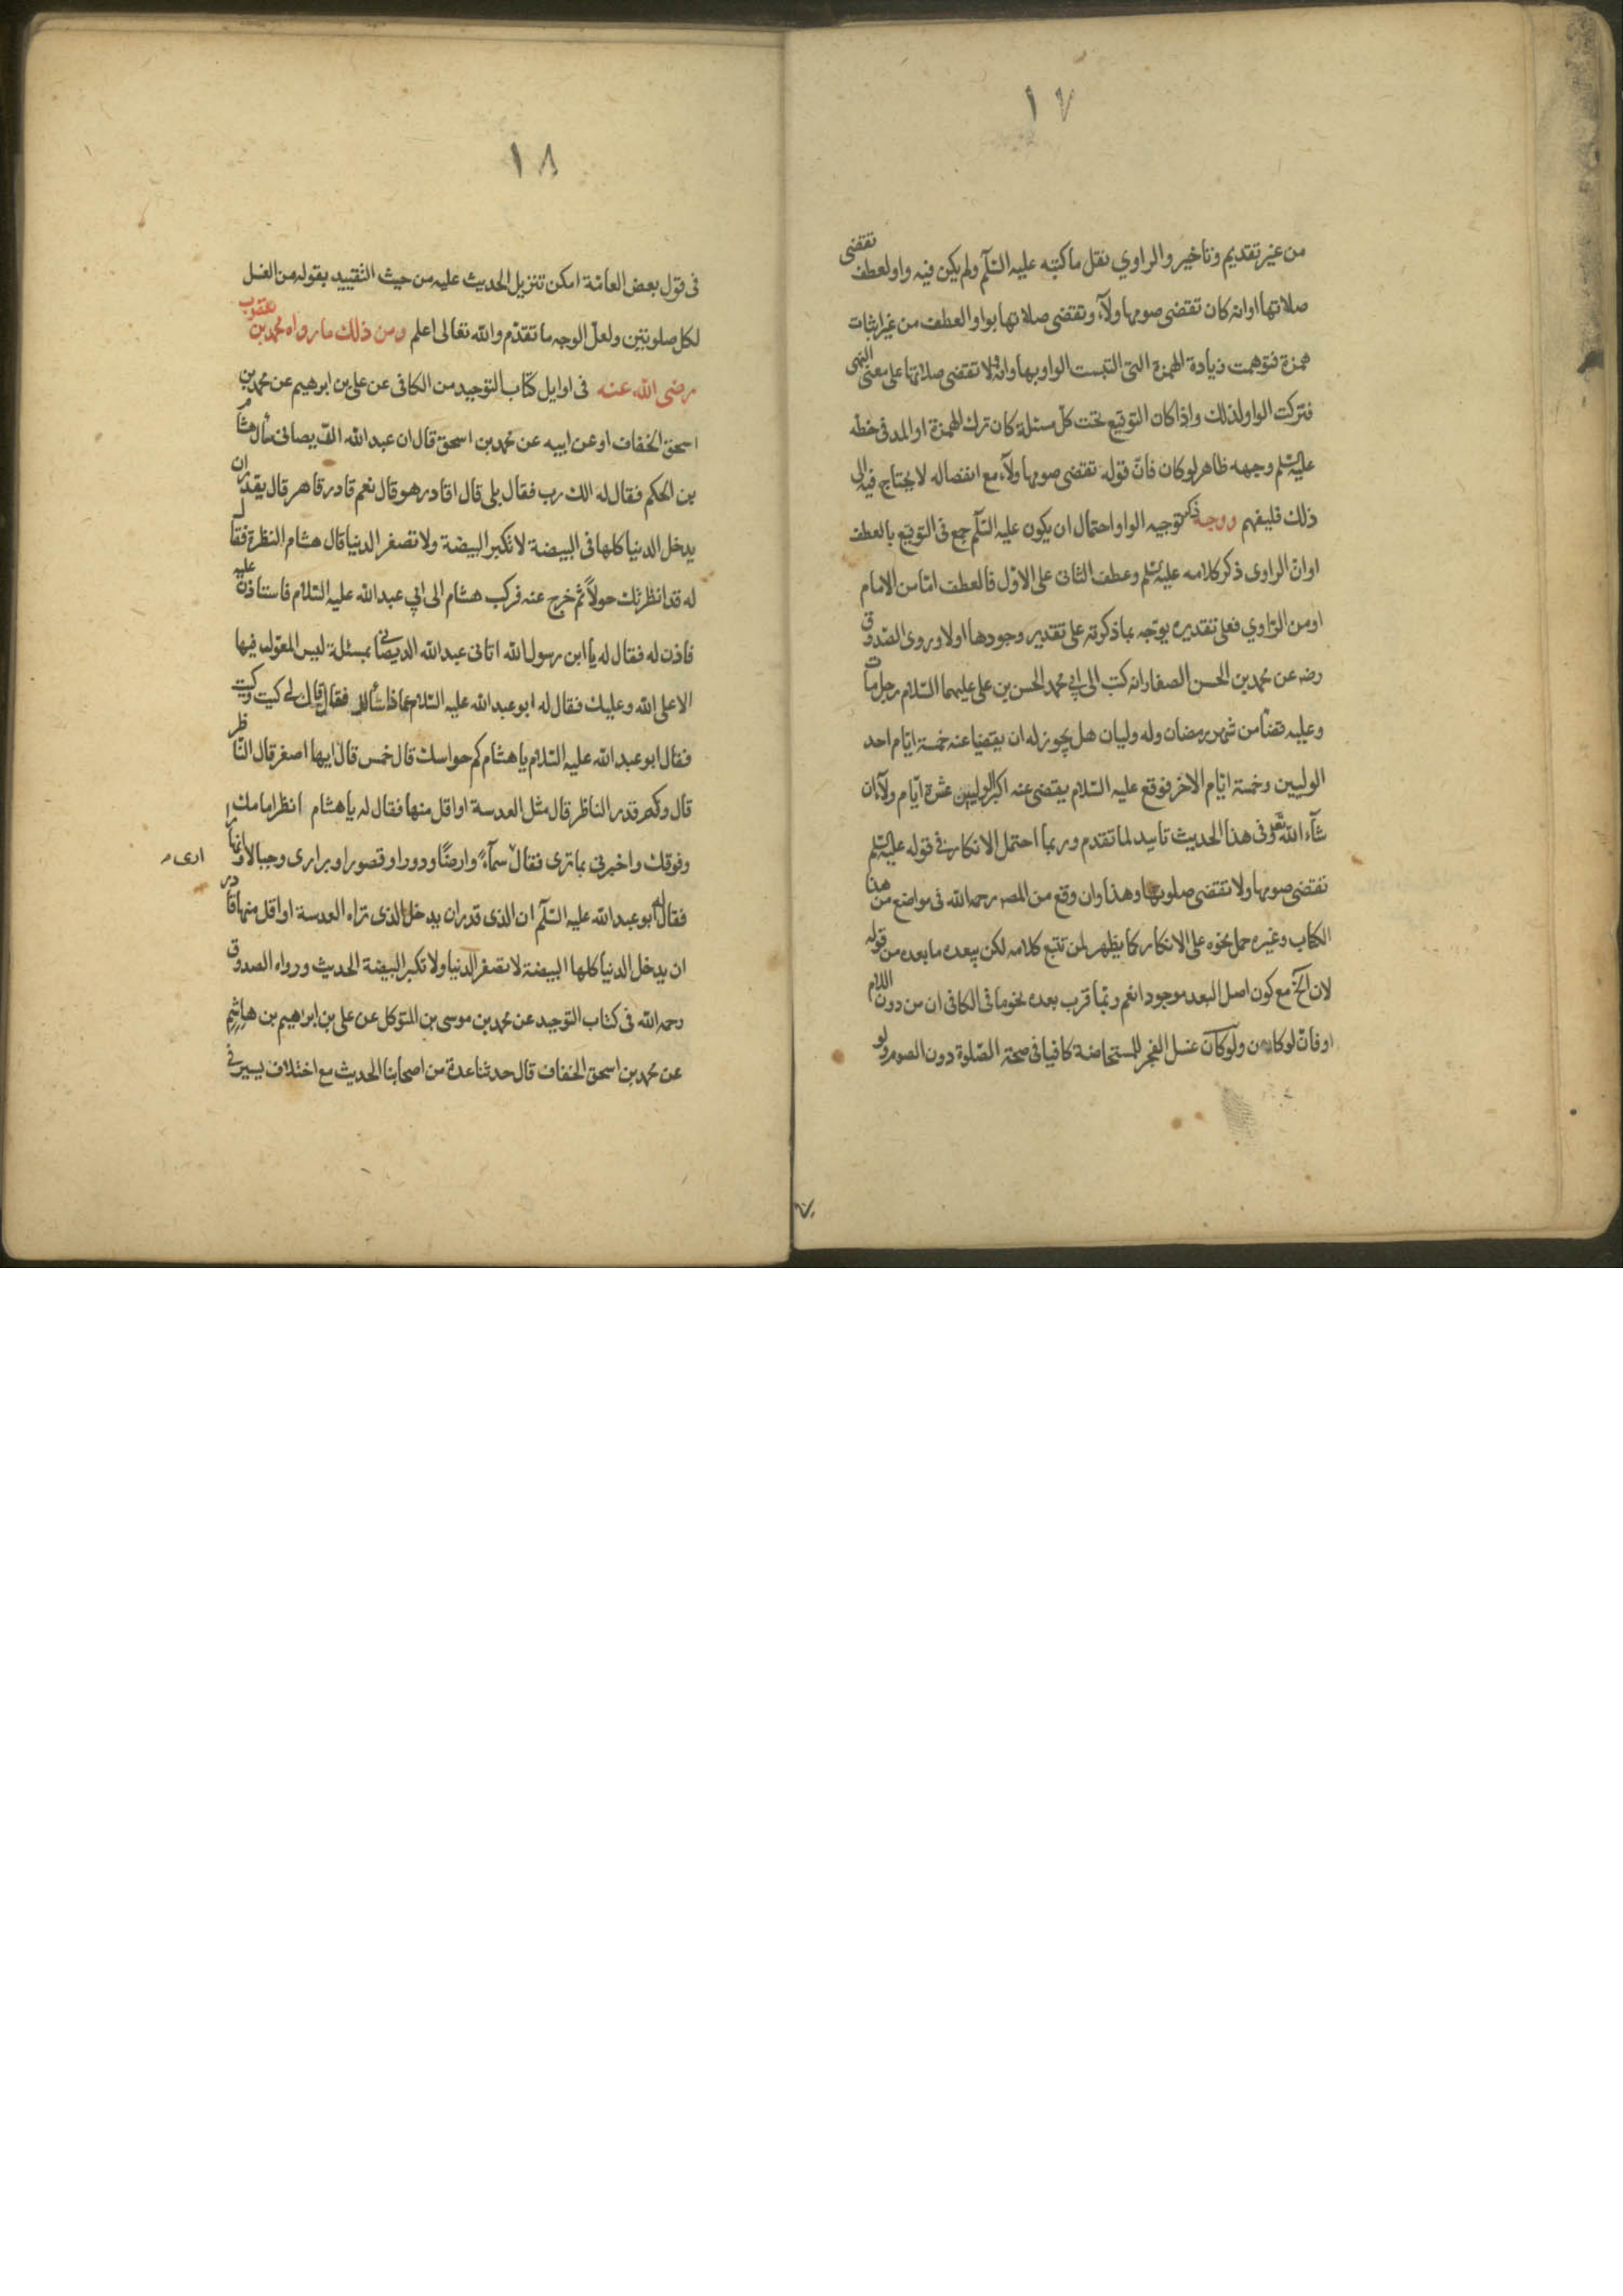 ١٧
من غير تقديم وتاخير والراوي نقل ما كتبه عليه السلم ولم يكن فيه واو لعطف تقتضى
صلاتها او انه كان تقتضى صومها ولآء وتقتضى صلاتها بواو العطف من غير اثبات
همزة فتوهمت زيادة الهمزة التى التبست الواو بها وانه ولا تقتضى صلاتها على معنى النهى
فتركت الواو لذلك واذا كان التوقيع تحت كل مسئلة كان ترك الهمزة او المد فى خطه
عليه السلم وجهه ظاهر لو كان فانّ قوله تقتضى صومها ولآء مع انفصاله لا يحتاج فيه الى
ذلك فليفهم ووجه ذكر توجيه الواو احتمال ان يكون عليه السلم جمع فى التوقيع بالعطف
او انّ الراوى ذكر كلامه عليه السلم وعطف الثانى على الاوّل فالعطف امّا من الامام
او من الرّاوي فعلى تقديره يوّجه بما ذكرته على تقدير وجودها اولا وروى الصّدوق
رضه عن محمد بن الحسن الصفار انه كتب الى ابي محمد الحسن بن على عليهما السّلام رجل مات
وعليه قضآ من شهر رمضان وله وليان هل يجوز له ان يقضيا عنه خمسة ايّام احد
الوليين وخمسة ايّام الاخر فوقع عليه السّلام يقتضى عنه اكبر الوليين عشرة ايّام ولآء ان
شآء الله تعر وفى هذا الحديث تاييد لما تقدم وربما احتمل الانكار فى قوله عليه السلم
تقتضى صومها ولا تقتضى صلوتها وهذا وان وقع من المصر رحمه الله فى مواضع من هذا
الكتاب وغيره حمل نحوه على الانكار كما يظهر لمن تتبع كلامه لكن يبعده ما بعده من قوله
لان الخ مع كون اصل البعد موجودا نعم ربّما قرب بعده نحو ما فى الكافى ان من دون اللام
او فانّ لو كان من ولو كان غسل الفجر للمستحاضة كافيا فى صحّة الصّلوة دون الصوم ولو
١٨
فى قول بعض العامّة امكن تنزيل الحديث عليه من حيث التّقييد بقوله من الغسل
لكل صلوتين ولعلّ الوجه ما تقدّم والله تعالى اعلم ومن ذلك ما رواه محمد بن يعقوب
رضى الله عنه فى اوايل كتاب التوحيد من الكافى عن على بن ابرهيم عن محمد بن
اسحق الخفاف او عن ابيه عن محمد بن اسحق قال ان عبد الله الديصانى سأل هشام
بن الحكم فقال له الك رب فقال بلى قال اقادر هو قال نعم قادر قاهر قال يقدر ان
يدخل الدنيا كلها فى البيضة لا تكبر البيضة ولا تصغر الدنيا قال هشام النظرة فقال
له قد انظرتك حولاً ثم خرج عنه فركب هشام الى ابي عبد الله عليه السّلام فاستاذن عليه
فاذن له فقال له يا ابن رسول الله اتانى عبد الله الديصانى بمسئلة ليس المعوّل فيها
الا على الله وعليك فقال له ابو عبد الله عليه السّلام عمّا ذا سألك فقال قال لي كيت وكيت
فقال ابو عبد الله عليه السّلام يا هشام كم حواسك قال خمس قال ايها اصغر قال النّاظر
قال وكم قدر الناظر قال مثل العدسة او اقل منها فقال له يا هشام انظر امامك
وفوقك واخبرنى بما ترى فقال سمآءً وارضًا ودورا وقصورا وبرارى وجبالا وانهارا
ارى
فقال له ابو عبد الله عليه السّلم ان الذى قدر ان يدخل الذى تراه العدسة او اقل منها قادر
ان يدخل الدنيا كلها البيضة لا تصغر الدنيا ولا تكبر البيضة الحديث ورواه الصدوق
رحمه الله فى كتاب التوحيد عن محمد بن موسى بن المتوكل عن على بن ابراهيم بن هاشم
عن محمد بن اسحق الخفاف قال حدثنا عدة من اصحابنا الحديث مع اختلاف يسير فى